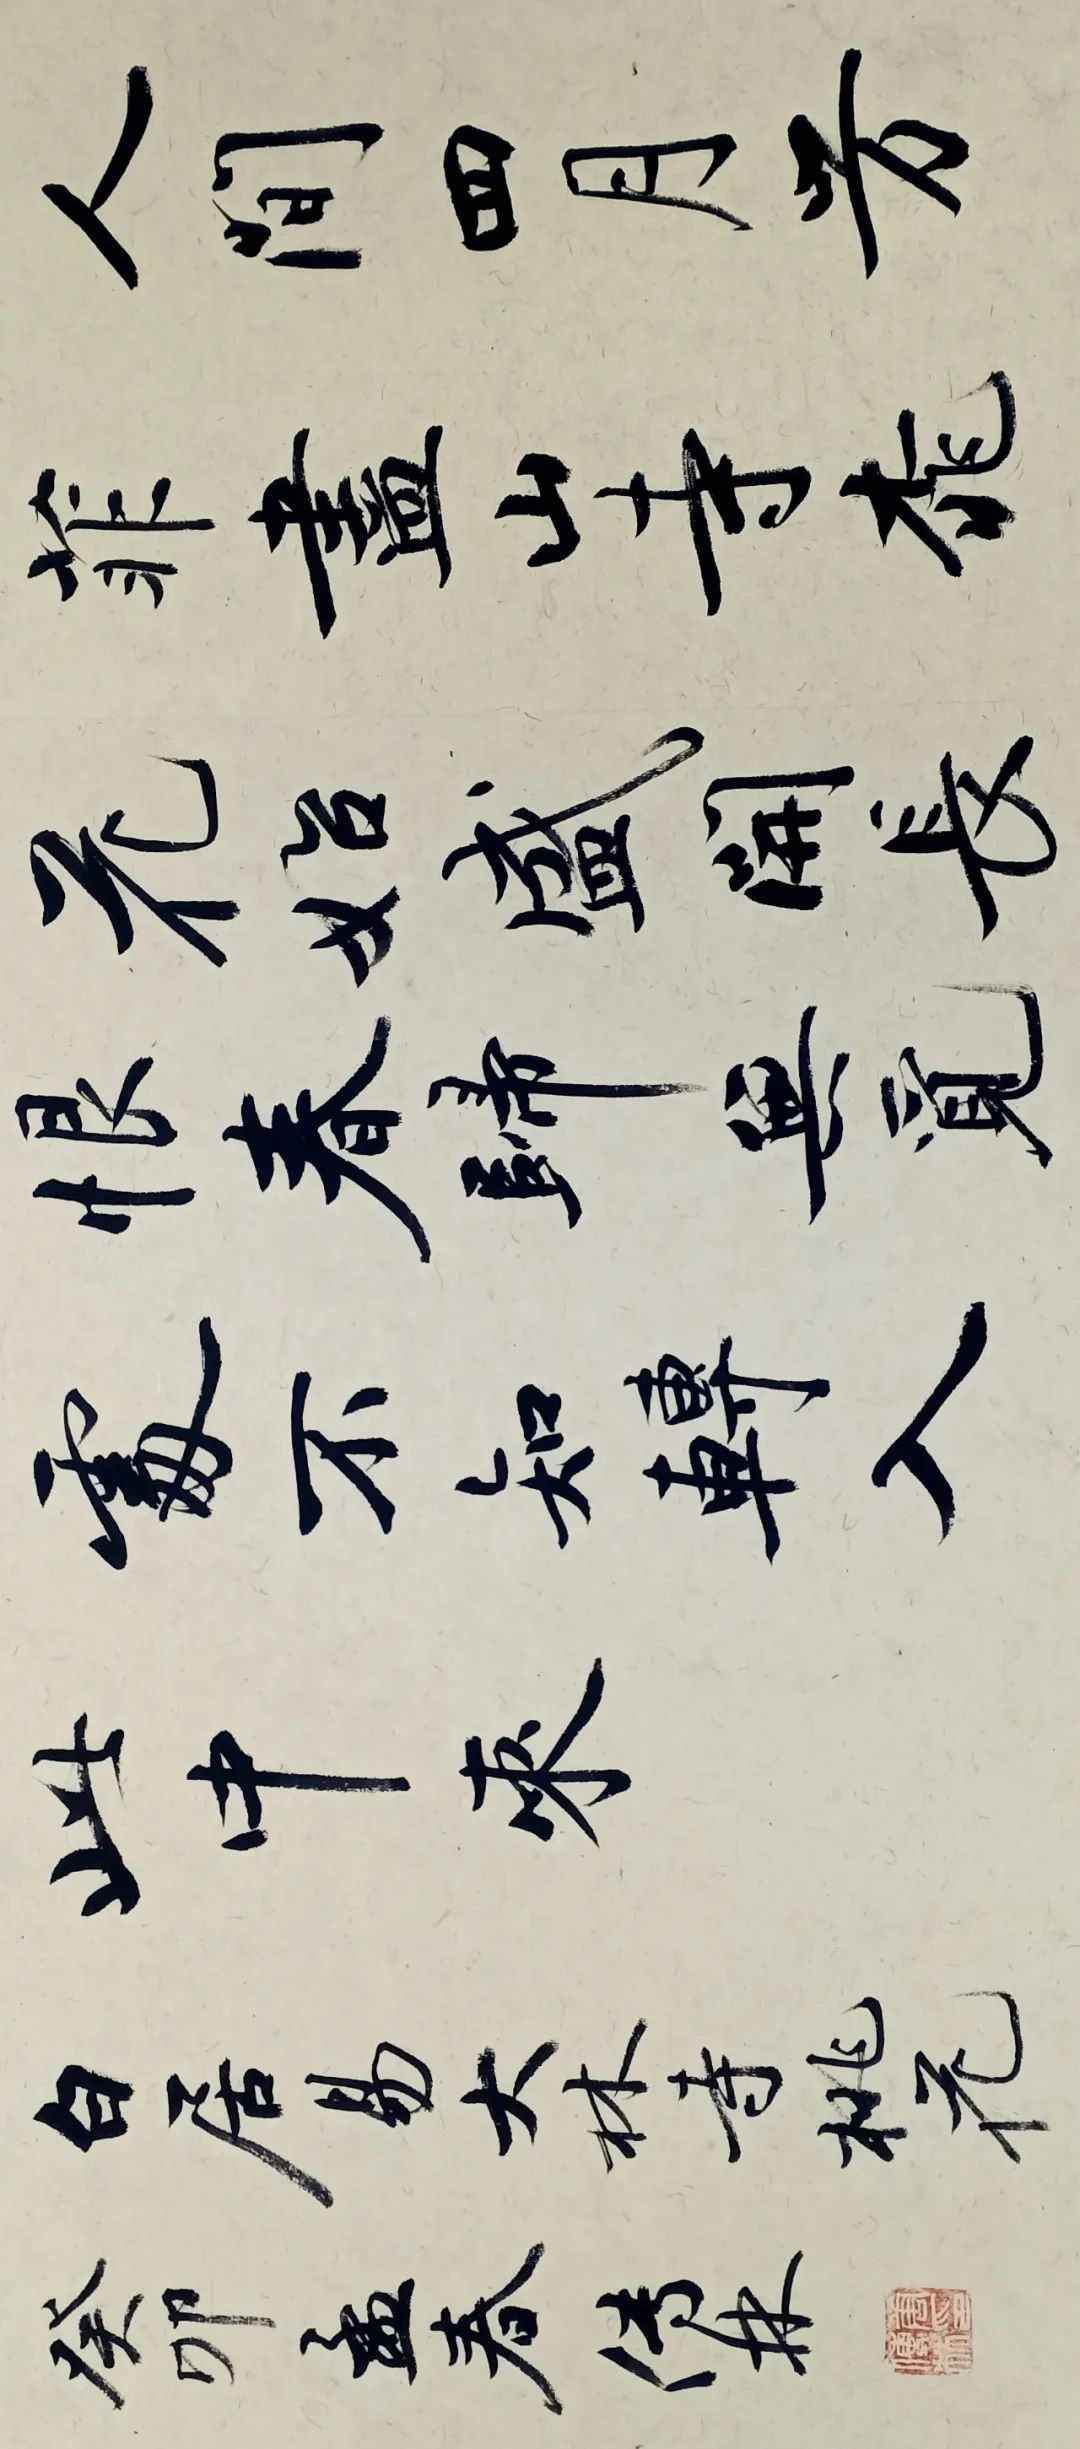 人間四月芳
菲盡山寺桃
花始盛開長
恨春歸無覓
處不知轉入
此中來
白居易大林寺桃花
癸卯孟春